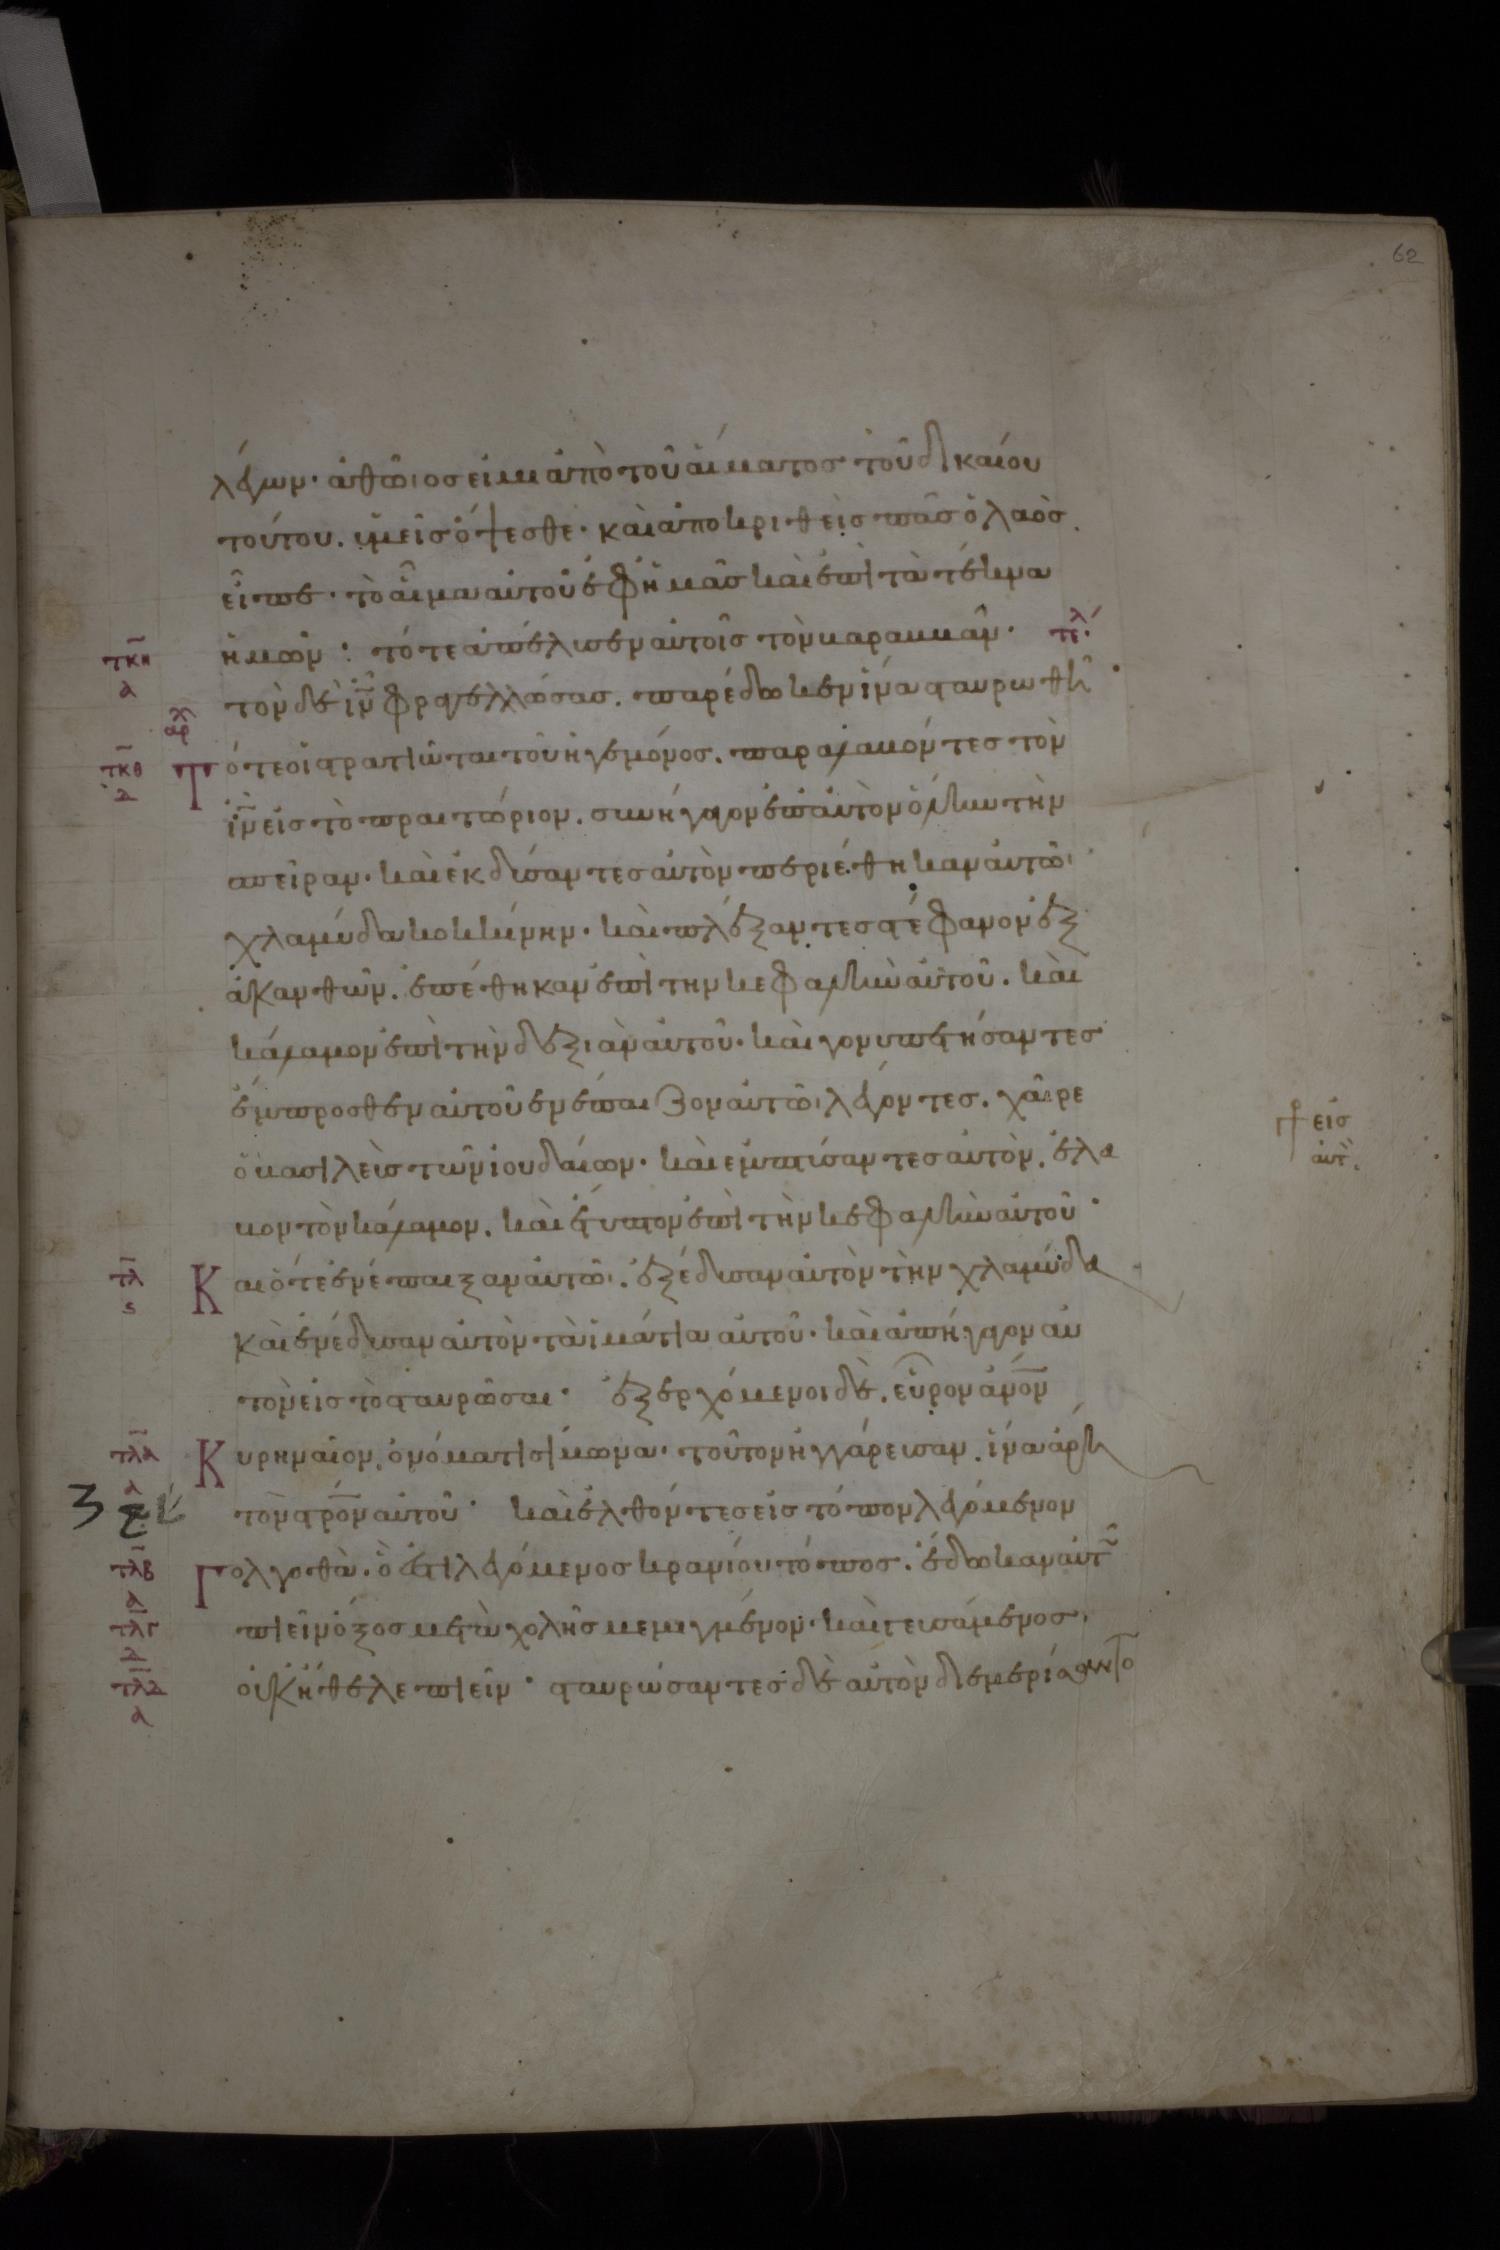 62
λέγων· ἀθῶιος εἰμι ἀπὸ τοῦ αἵματος τοῦ δικαίου
τούτου. ὑμεῖς ὄψεσθε· καὶ ἀποκριθεὶς πᾶς ὁ λαὸς
εἶπε· τὸ αἷμα αὐτοῦ ἐφ ἡμᾶς καὶ ἐπὶ τὰ τέκνα
τκη ἡμῶν : τότε ἀπέλυσεν αὐτοῖς τὸν βαραββᾶν· τελ
α τὸν δὲ ἰν̅ φραγελλώσας. παρέδωκεν ἵνα σταυρωθῆ·
αρχ
τκθ Τότε οἱ στρατιῶται τοῦ ἡγεμόνος. παραλαβόντες τὸν
δ ἰν̅ εἰς τὸ πραιτώριον. συνήγαγον ἐπ αὐτὸν ὅλην τὴν
σπεῖραν· καὶ ἐκδύσαντες αὐτὸν περιέθηκαν αὐτῶι
χλαμύδα κοκκίνην· καὶ πλέξαντες στέφανον ἐξ
ἀκανθῶν. ἐπέθηκαν ἐπὶ την κεφαλὴν αὐτοῦ. καὶ
κάλαμον ἐπὶ τὴν δεξιὰν αὐτοῦ· καὶ γονυπετήσαντες
ἔμπροσθεν αὐτοῦ ἐνέπαιζον αὐτῶι λέγοντες. χαῖρε
εἰσ
ὁ βασιλεὺς τῶν ἰουδαίων· καὶ ἐμπτύσαντες αὐτὸν. ἔλα
αὐτ.
βον τὸν κάλαμον. καὶ ἔτυπτον ἐπὶ τὴν κεφαλὴν αὐτοῦ·
τλ Και ὅτε ἐνέπαιξαν αὐτῶι. ἐξέδυσαν αὐτὸν τὴν χλαμύδα
ς
καὶ ἐνέδυσαν αὐτὸν τὰ ἱμάτια αὐτοῦ· καὶ ἀπήγαγον αὐ
τὸν εἰς τὸ σταυρῶσαι· ἐξερχόμενοι δὲ. εὗρον ἀνο̅ν
τλα Κυρηναῖον. ὀνόματι σίμωνα· τοῦτον ἠγγάρευσαν. ἵνα ἄρη
α τὸν στρο̅ν αὐτοῦ· καὶ ἐλθόντες εἰς τόπον λεγόμενον
τλβ Γολγοθὰ. ὅ ἐστι λεγόμενος κρανίου τόπος. ἔδωκαν αὐτ
α
τλγ πιεῖν ὄξος μετὰ χολῆς μεμιγμένον· καὶ γευσάμενος.
δ
τλδ οὐκ ἤθελε πιεῖν· σταυρώσαντες δὲ αὐτὸν διεμερίσαντο
α